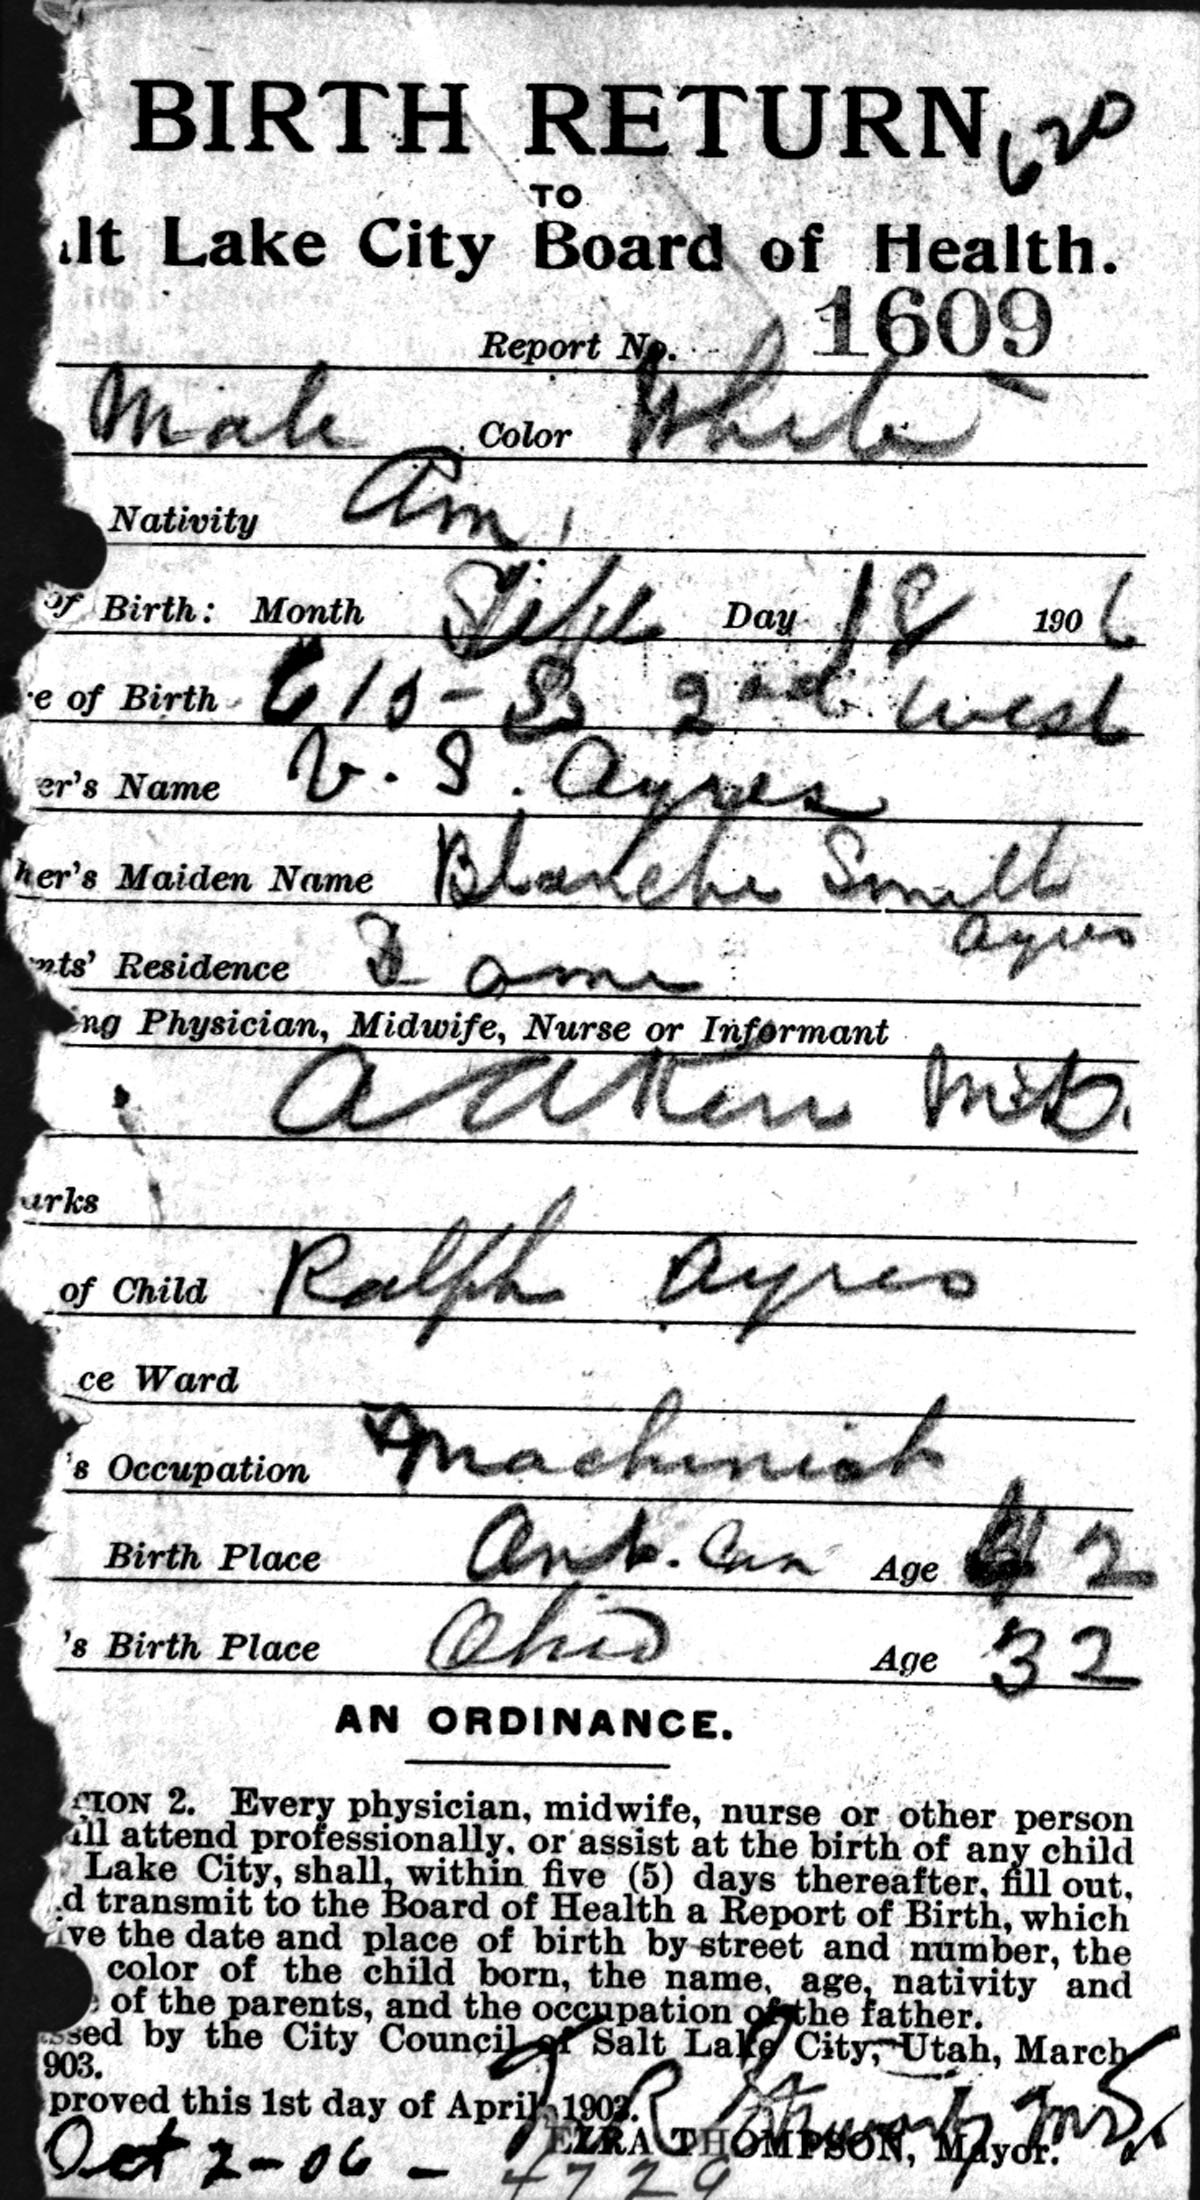 BIRTH RETURN 620
TO
lt Lake City Board of Health.
Report No. 1609
Male Color White
Nativity Am.
of Birth: Month Sept Day 18 1906
e of Birth 615 - S 2nd West
er's Name V. S. Ayres
her's Maiden Name Blanche Smith
Ayres
nts' Residence Same
ng Physician, Midwife, Nurse or Informant
M.D.
arks
of Child Ralph Ayres
ce Ward
's Occupation Machinist
Birth Place Ont. Can Age 42
's Birth Place Ohio Age 32
AN ORDINANCE.
TION 2. Every physician, midwife, nurse or other person
all attend professionally, or assist at the birth of any child
Lake City, shall, within five (5) days thereafter, fill out,
d transmit to the Board of Health a Report of Birth, which
ive the date and place of birth by street and number, the
color of the child born, the name, age, nativity and
e of the parents, and the occupation of the father.
ssed by the City Council of Salt Lake City, Utah, March
903.
proved this 1st day of April, 1903.
EZRA THOMPSON, Mayor.
Oct 2-06 - 4729